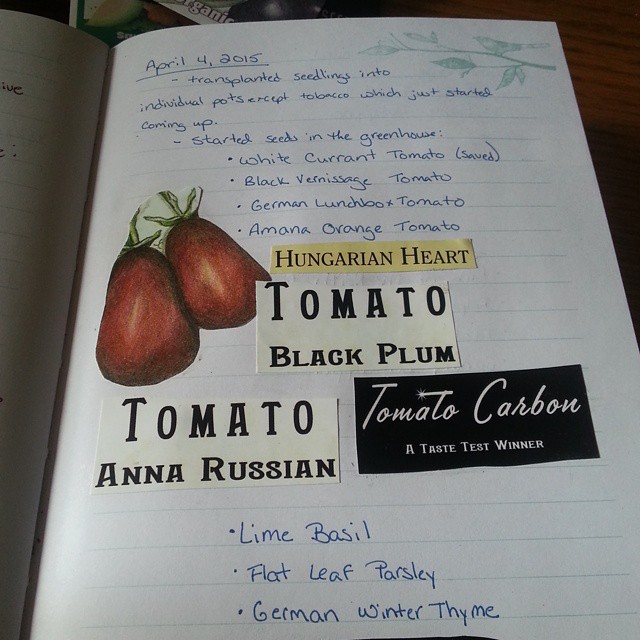 April 4, 2015
- transplanted seedlings into
individual pots except tobacco which just started
coming up.
- Started seeds in the greenhouse:
• White Currant Tomato (saved)
• Black Vernissage Tomato
• German Lunchbox Tomato
• Amana Orange Tomato
HUNGARIAN HEART
TOMATO
BLACK PLUM
TOMATO
ANNA RUSSIAN
Tomato Carbon
A TASTE TEST WINNER
• Lime Basil
• Flat Leaf Parsley
• German Winter Thyme